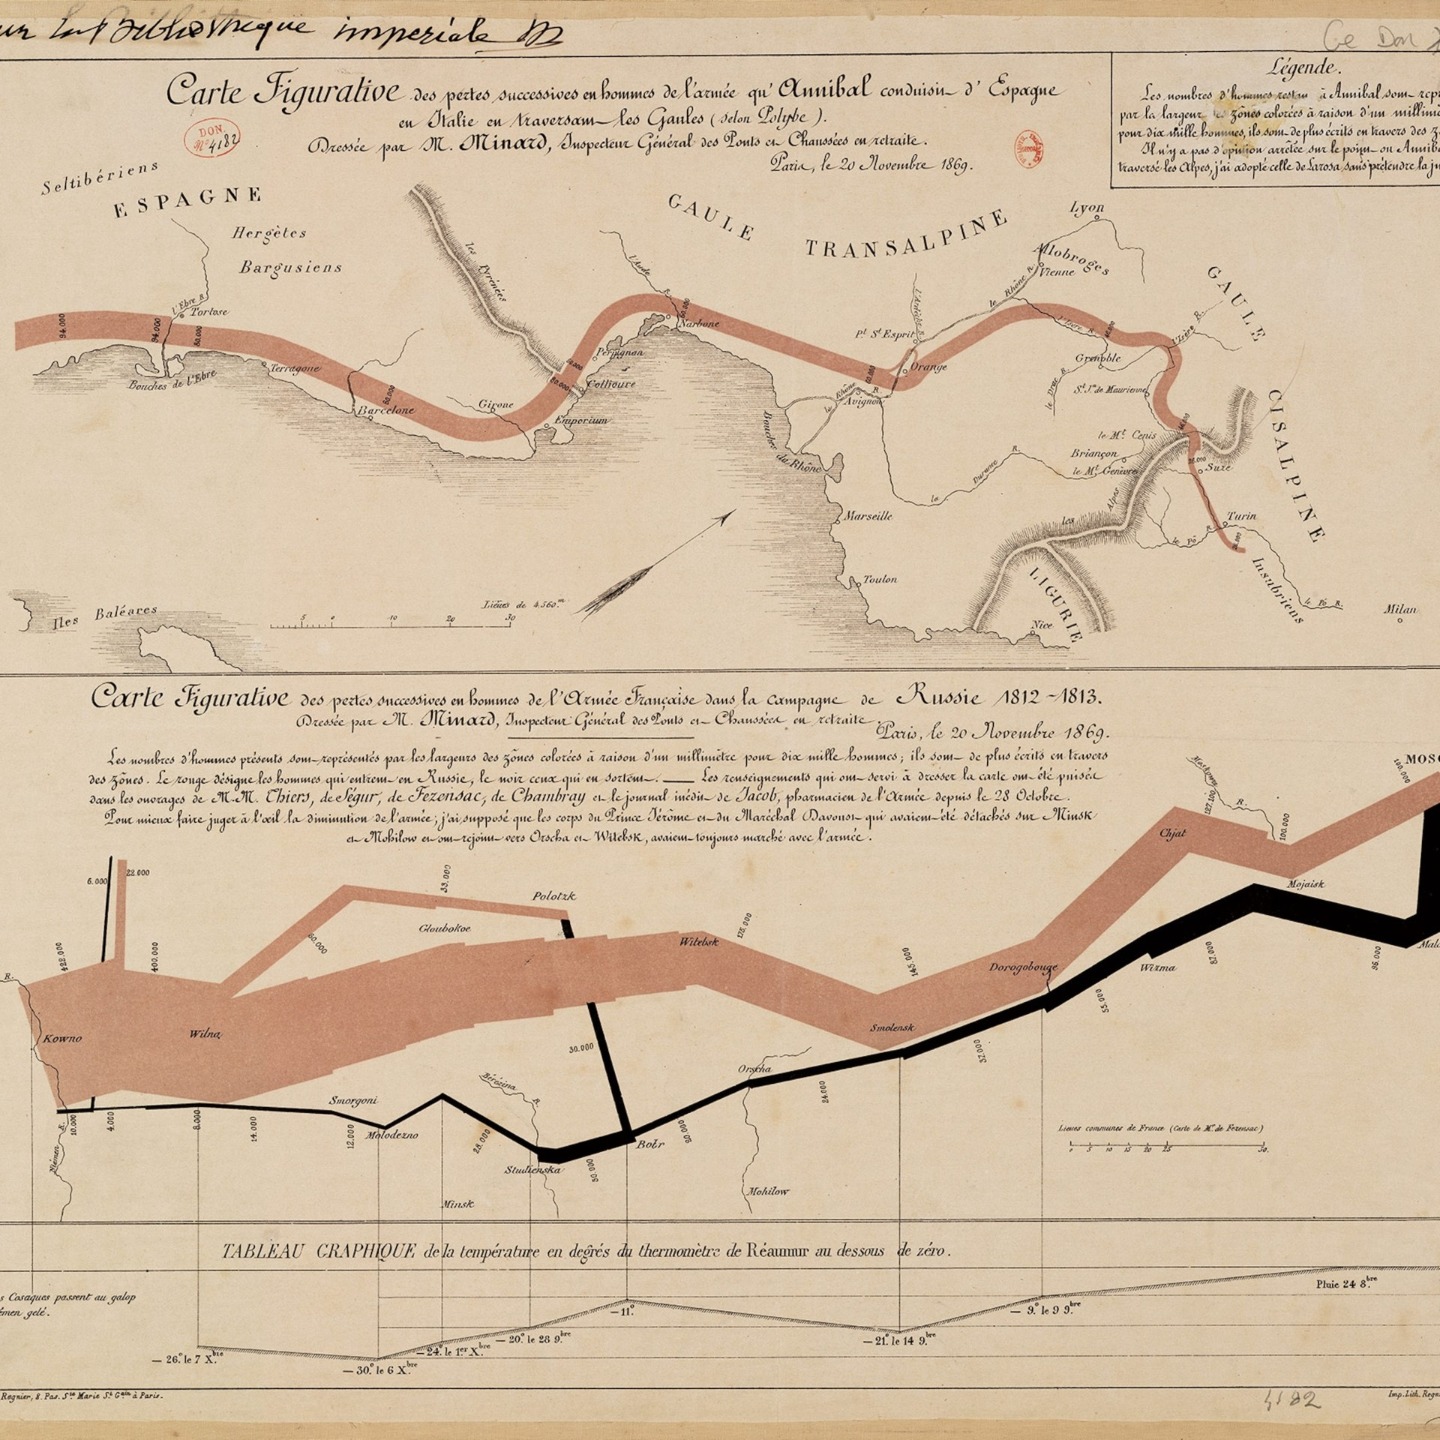 ur la Bibliothèque impériale
Ce Don
Carte Figurative des pertes successives en hommes de l'armée qu'Annibal conduisit d'Espagne
en Italie en traversant les Gaules (selon Polybe).
Dressée par M. Minard, Inspecteur Général des Ponts et Chaussées en retraite.
Paris, le 20 Novembre 1869.
DON.
No 4182
Légende.
Les nombres d'hommes restant à Annibal sont
par la largeur des zônes colorées à raison d'un
pour dix mille hommes, ils sont de plus écrits en travers des
Il n'y a pas d'opinion arrêtée sur le point où
traversé les Alpes, j'ai adopté celle de Larosa sans prétendre la
Seltibériens
ESPAGNE
Hergètes
Bargusiens
GAULE TRANSALPINE
Lyon
Allobroges
Vienne
GAULE
CISALPINE
les Pyrénées
l'Aude R.
le Rhône R.
l'Ardèche R.
l'Isère R.
l'Isère R.
94.000
l'Ebre R.
Tortose
94.000
Bouches de l'Ebre
Terragone
Barcelone
Girone
Emporium
Collioure
Perpignan
Narbone
Pt. St Esprit
Orange
le Rhône R.
Avignon
Grenoble
le Drac R.
St. J. de Maurienne
le Mt. Cenis
Briançon
le Mt. Genèvre
Suze
Turin
le Pô R.
les Alpes
Bouches du Rhône
la Durance R.
Marseille
Toulon
LIGURIE
Nice
Insubriens
le Pô R.
Milan
Iles Baléares
Lieues de 4.560.m
5 0 10 20 30
Carte Figurative des pertes successives en hommes de l'Armée Française dans la campagne de Russie 1812-1813.
Dressée par M. Minard, Inspecteur Général des Ponts et Chaussées en retraite
Paris, le 20 Novembre 1869.
Les nombres d'hommes présents sont représentés par les largeurs des zônes colorées à raison d'un millimètre pour dix mille hommes; ils sont de plus écrits en travers
des zônes. Le rouge désigne les hommes qui entrent en Russie, le noir ceux qui en sortent. — Les renseignements qui ont servi à dresser la carte ont été puisés
dans les ouvrages de M.M. Thiers, de Ségur, de Fezensac, de Chambray et le journal inédit de Jacob, pharmacien de l'Armée depuis le 28 Octobre.
Pour mieux faire juger à l'œil la diminution de l'armée, j'ai supposé que les corps du Prince Jérôme et du Maréchal Davoust qui avaient été détachés sur Minsk
et Mohilow et ont rejoint vers Orscha et Witebsk, avaient toujours marché avec l'armée.
MOSC
100.000
Moskowa R.
127.100
100.000
Chjat
Mojaisk
6.000
22.000
60.000
33.000
Polotzk
Gloubokoe
422.000
400.000
Witebsk
175.000
145.000
Dorogobouge
Wizma
87.000
96.000
Malo
55.000
37.000
R.
Kowno
Wilna
Smolensk
30.000
Orscha
24.000
Smorgoni
Bérézina R.
10.000
4.000
8.000
14.000
12.000
Molodezno
28.000
Studienska
50.000
Bobr
20.000
Niémen R.
Minsk
Mohilow
Lieues communes de France (Carte de M. de Fezensac)
0 5 10 15 20 25 50
TABLEAU GRAPHIQUE de la température en degrés du thermomètre de Réaumur au dessous de zéro.
s Cosaques passent au galop
émen gelé.
Pluie 24 8.bre
— 9.° le 9 9.bre
— 21.° le 14 9.bre
— 11.°
— 20.° le 28 9.bre
— 24.° le 1.er X.bre
— 30.° le 6 X.bre
— 26.° le 7 X.bre
Regnier, 8. Pas. Ste Marie St Gain à Paris.
4182
Imp. Lith. Regn